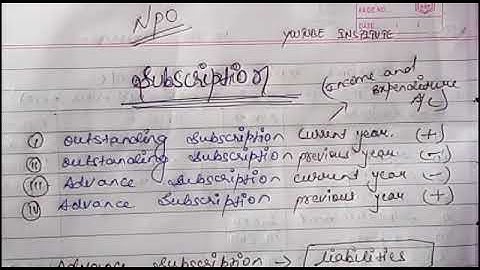 NPO
PAGE NO.
DATE
YOUTUBE INSTITUTE
Subscription
(Income and
expenditure
A/c)
(i) Outstanding Subscription current year. (+)
(ii) Outstanding Subscription previous year. (-)
(iii) Advance Subscription current year (-)
(iv) Advance Subscription previous year (+)
Advance Subscription → liabilities